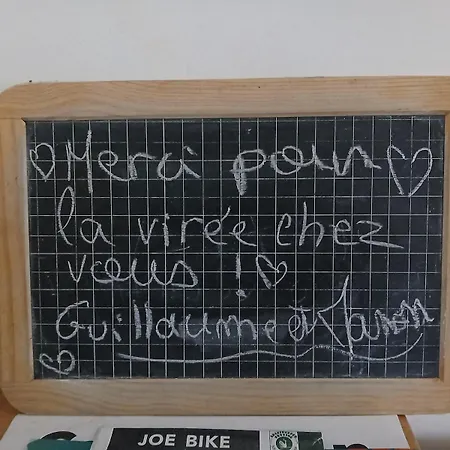 Merci pour
la virée chez
vous !
Guillaume et Manon
JOE BIKE